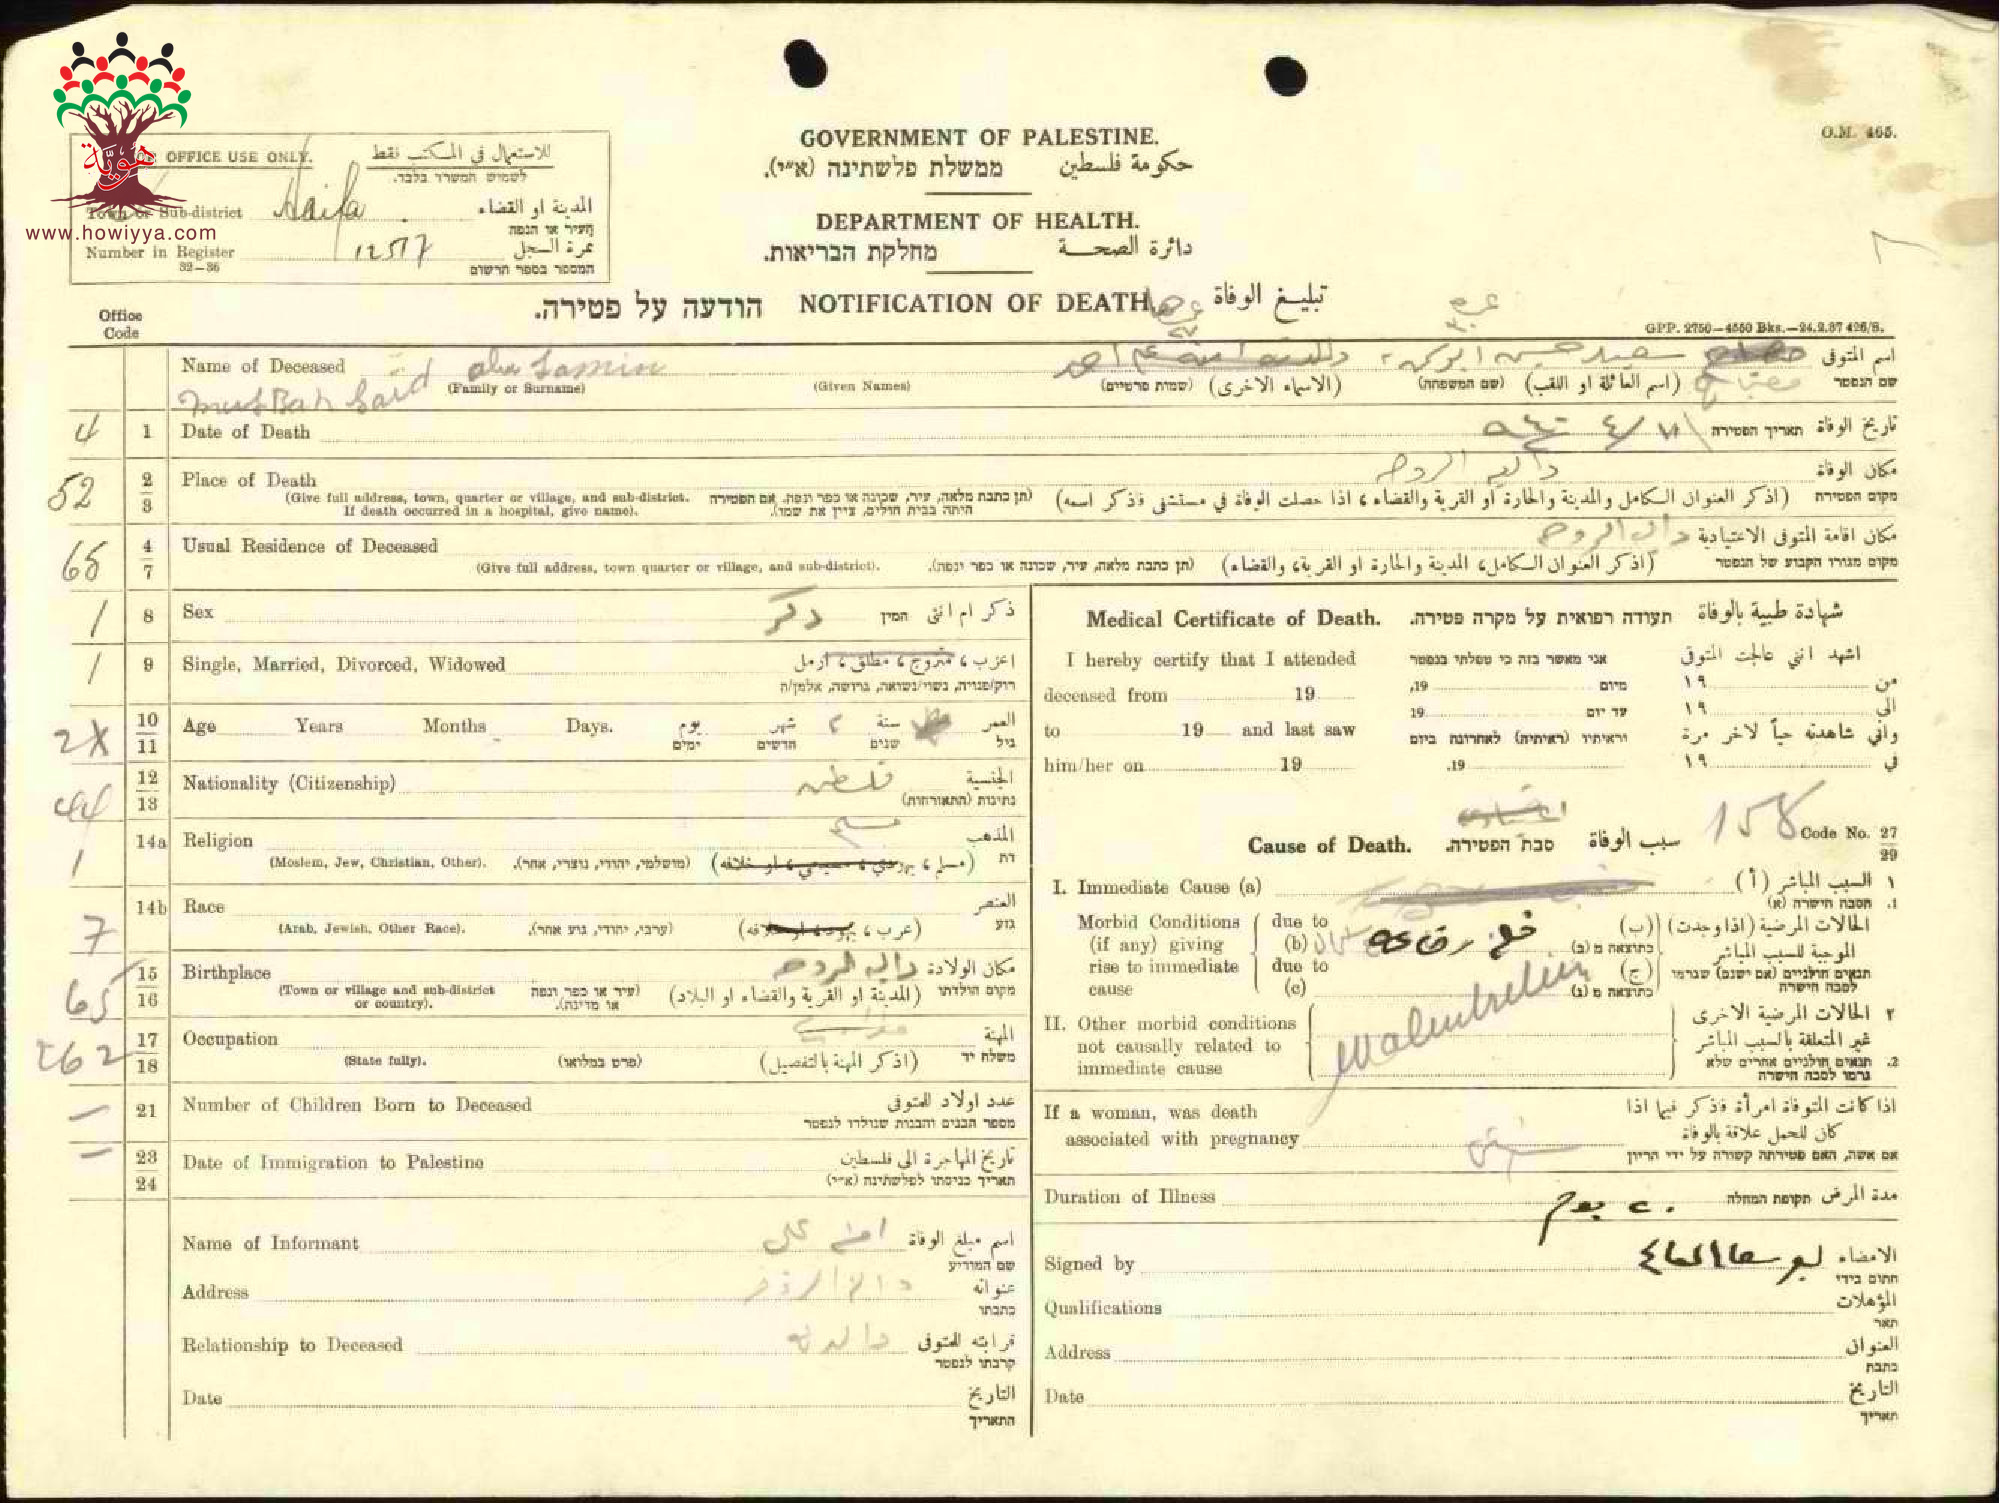 GOVERNMENT OF PALESTINE.
حكومة فلسطين ממשלת פלשתינה (א״י).
O.M. 465.
FOR OFFICE USE ONLY. للاستعمال في المكتب فقط
לשמוש המשרד בלבד.
Town or Sub-district Haifa المدينة او القضاء
העיר או הנפה
Number in Register 12517 نمرة السجل
32—36 המספר בספר הרשום
هوية
www.howiyya.com
DEPARTMENT OF HEALTH.
دائرة الصحة מחלקת הבריאות.
הודעה על פטירה. NOTIFICATION OF DEATH. تبليغ الوفاة
GPP. 2750—4550 Bks.—24.2.37 426/S.
Office
Code
Name of Deceased abu اسم المتوفى
(Family or Surname) (Given Names) (שמות פרטיים) (الاسماء الاخرى) (שם המשפחה) (اسم العائلة او اللقب) שם הנפטר
Said
4 1 Date of Death תאריך הפטירה تاريخ الوفاة
52 2/3 Place of Death دالية الروحا مكان الوفاة
(Give full address, town, quarter or village, and sub-district. If death occurred in a hospital, give name). (תן כתבת מלאה, עיר, שכונה או כפר ונפה. אם הפטירה היתה בבית חולים, ציין את שמו). (اذكر العنوان الكامل والمدينة والحارة او القرية والقضاء، اذا حصلت الوفاة في مستشفى فذكر اسمه) מקום הפטירה
65 4/7 Usual Residence of Deceased دالية الروحا مكان اقامة المتوفى الاعتيادية
(Give full address, town quarter or village, and sub-district). (תן כתבת מלאה, עיר, שכונה או כפר ונפה). (اذكر العنوان الكامل، المدينة والحارة او القرية، والقضاء) מקום מגורו הקבוע של הנפטר
1 8 Sex ذكر המין ذكر ام انثى
1 9 Single, Married, Divorced, Widowed اعزب، متزوج، مطلق، ارمل
רוק/פנויה, נשוי/נשואה, גרושה, אלמן/ה
10/11 Age Years Months Days. יום شهر سنة العمر
ימים חדשים שנים גיל
12/13 Nationality (Citizenship) الجنسية
נתינות (התאזרחות)
1 14a Religion مسلم المذهب
(Moslem, Jew, Christian, Other). (מושלמי, יהודי, נוצרי, אחר). (مسلم، يهودي، مسيحي، او خلافه) דת
7 14b Race العنصر
(Arab, Jewish, Other Race). (ערבי, יהודי, גזע אחר). (عرب، يهود، او خلافه) גזע
65 15/16 Birthplace دالية الروحا مكان الولادة
(Town or village and sub-district or country). (עיר או כפר ונפה או מדינה). (المدينة او القرية والقضاء او البلاد) מקום הולדתו
262 17/18 Occupation المهنة
(State fully). (פרט במלואו) (اذكر المهنة بالتفصيل) משלח יד
— 21 Number of Children Born to Deceased عدد اولاد المتوفى
מספר הבנים והבנות שנולדו לנפטר
— 23/24 Date of Immigration to Palestine تاريخ المهاجرة الى فلسطين
תאריך כניסתו לפלשתינה (א״י)
Name of Informant اسم مبلغ الوفاة
שם המודיע
Address عنوانه
כתבתו
Relationship to Deceased والدته قرابته للمتوفى
קרבתו לנפטר
Date التاريخ
התאריך
Medical Certificate of Death. תעודה רפואית על מקרה פטירה. شهادة طبية بالوفاة
I hereby certify that I attended אני מאשר בזה כי טפלתי בנפטר اشهد انني عالجت المتوفى
deceased from 19 מיום 19, من ١٩
to 19 and last saw עד יום 19 الى ١٩
וראיתיו (ראיתיה) לאחרונה ביום واني شاهدته حياً لاخر مرة
him/her on 19 19. في ١٩
Cause of Death. סבת הפטירה. سبب الوفاة 158 Code No. 27/29
I. Immediate Cause (a) السبب المباشر (أ) ١
הסבה הישרה (א) 1.
Morbid Conditions (if any) giving rise to immediate cause due to (b) due to (c)
الحالات المرضية (اذا وجدت) الموجبة للسبب المباشر (ب) (ج)
כתוצאה מ (ב) כתוצאה מ (ג)
תנאים חולניים (אם ישנם) שגרמו לסבה הישרה
II. Other morbid conditions not causally related to immediate cause
٢ الحالات المرضية الاخرى غير المتعلقة بالسبب المباشر
2. תנאים חולניים אחרים שלא גרמו לסבה הישרה
If a woman, was death associated with pregnancy
اذا كانت المتوفاة امرأة فذكر فيما اذا كان للحمل علاقة بالوفاة
אם אשה, האם פטירתה קשורה על ידי הריון
Duration of Illness ٢٠ يوم תקופת המחלה مدة المرض
Signed by الامضاء
חתום בידי
Qualifications المؤهلات
תאר
Address العنوان
כתבת
Date التاريخ
תאריך